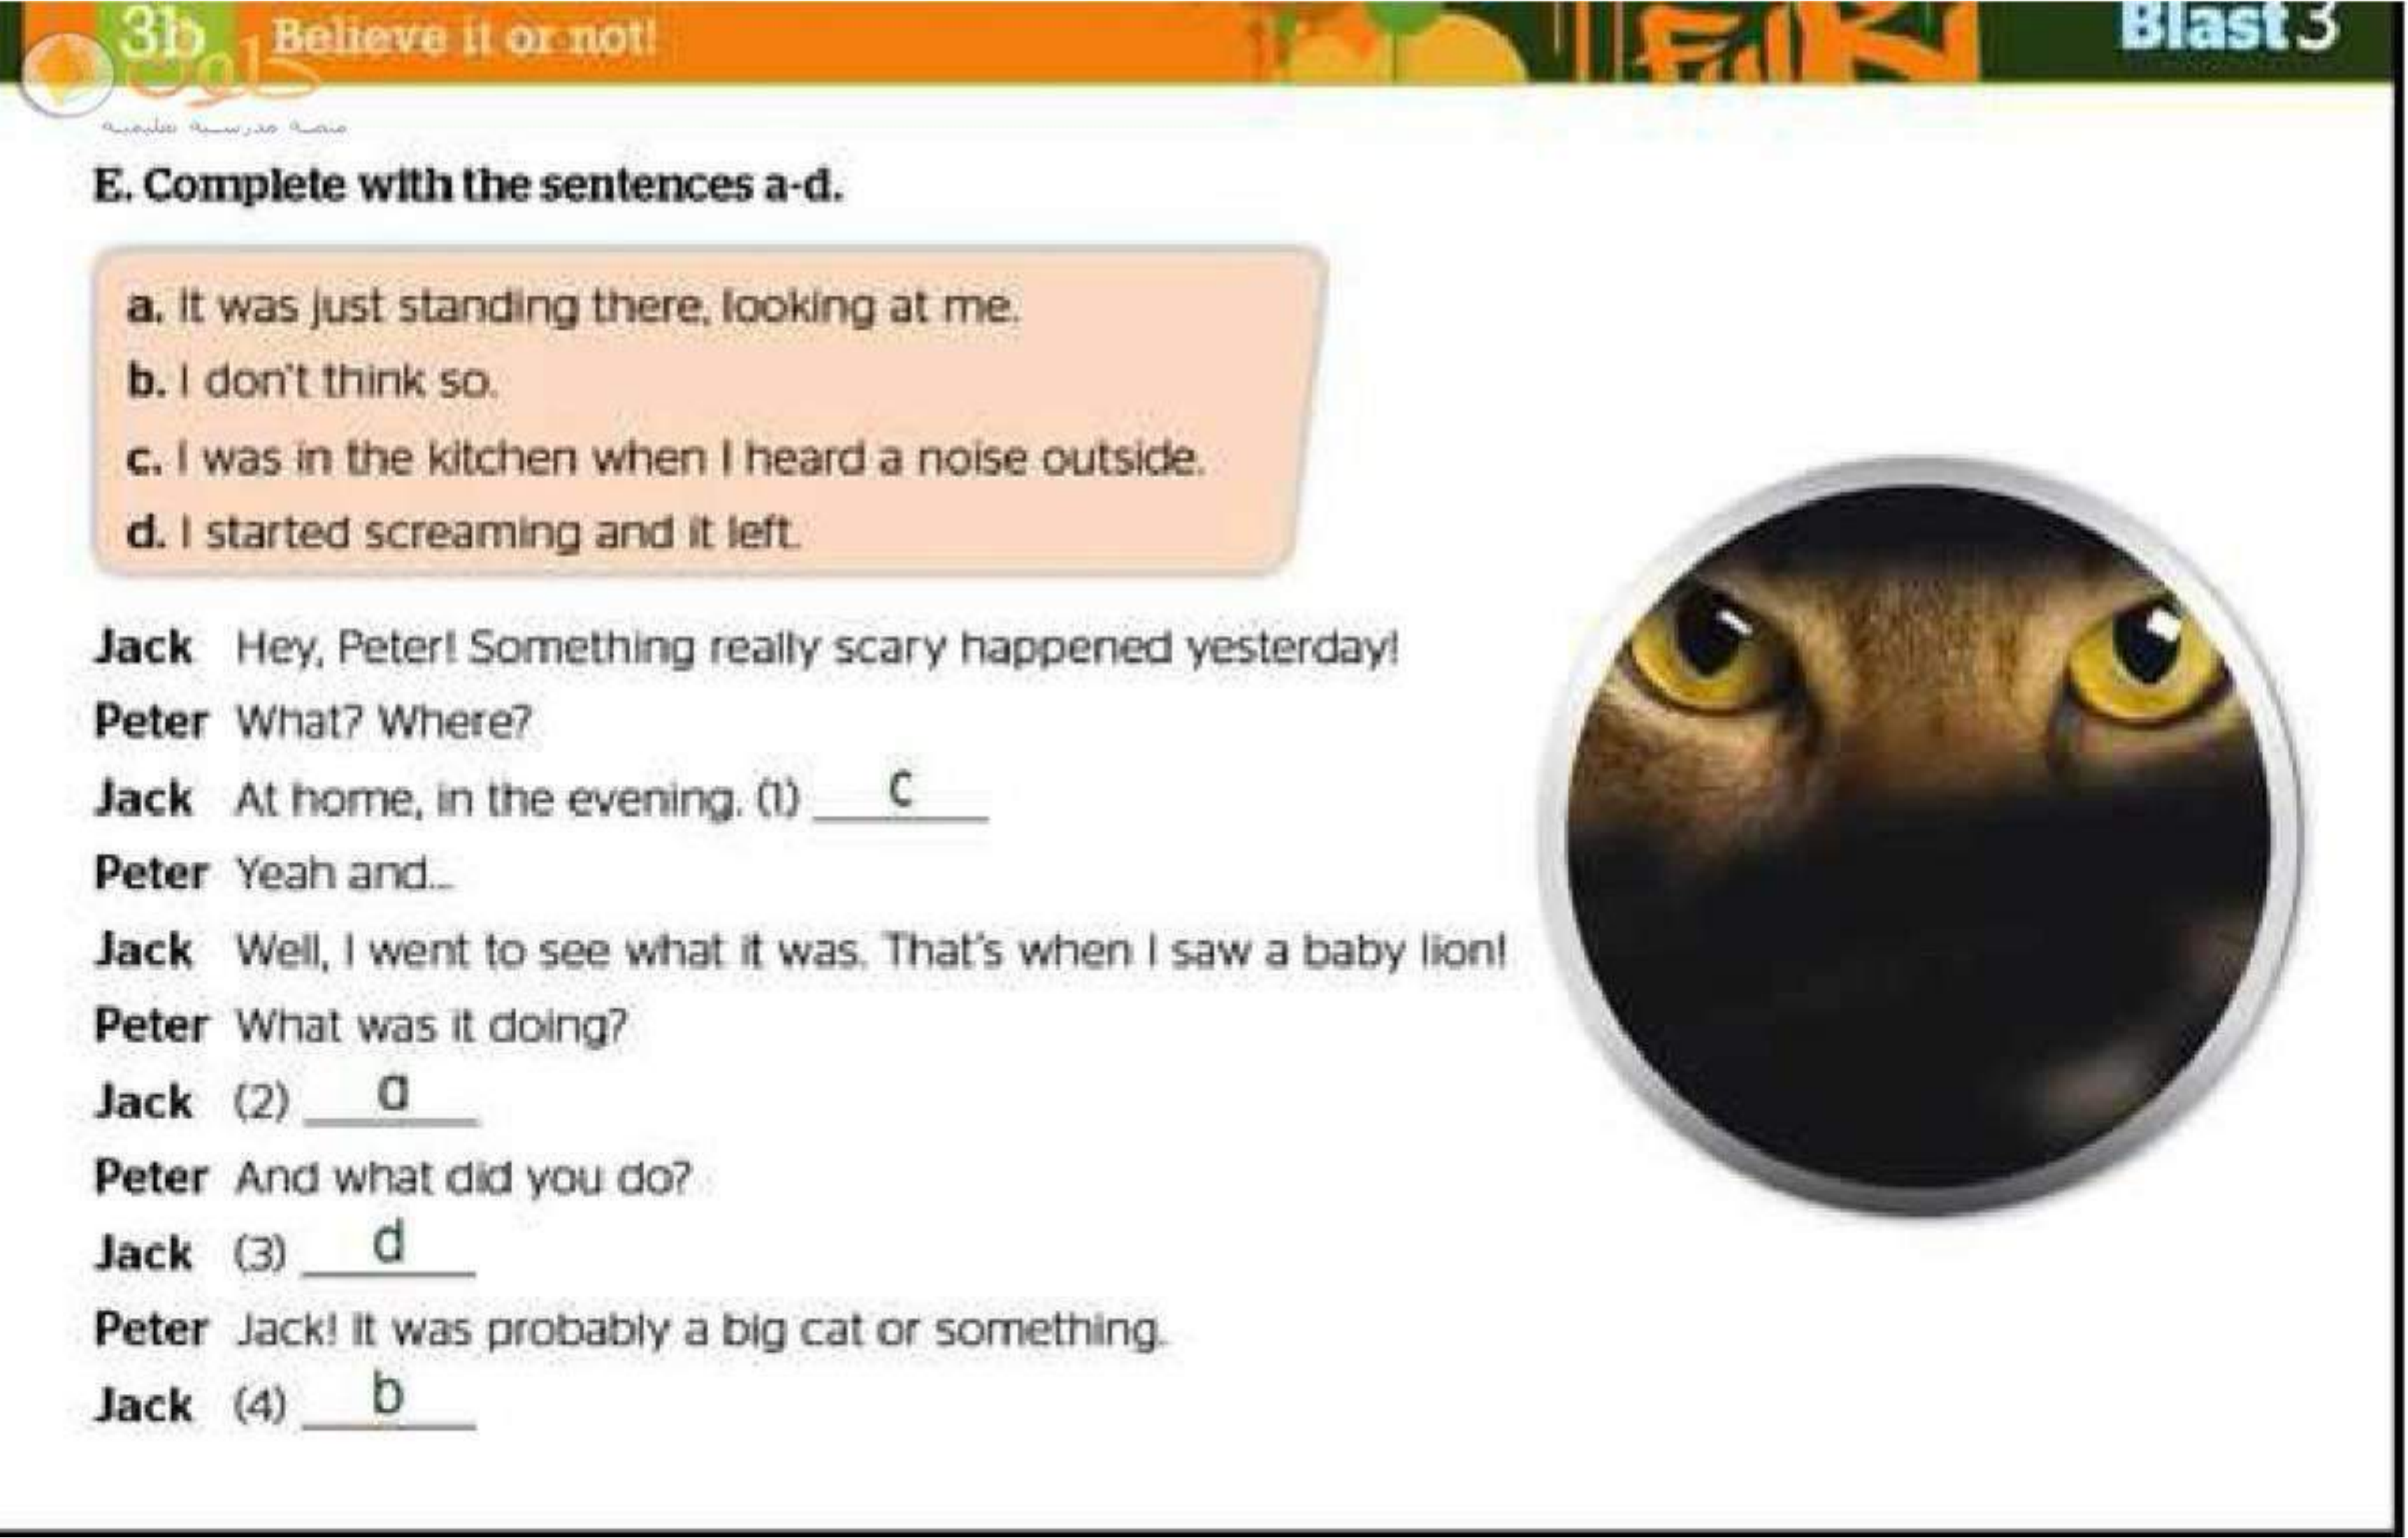 3b Believe it or not!
Full Blast 3
حلول
منصة مدرستية تعليمية
E. Complete with the sentences a-d.
a. It was just standing there, looking at me.
b. I don't think so.
c. I was in the kitchen when I heard a noise outside.
d. I started screaming and it left.
Jack Hey, Peter! Something really scary happened yesterday!
Peter What? Where?
Jack At home, in the evening. (1) c
Peter Yeah and...
Jack Well, I went to see what it was. That's when I saw a baby lion!
Peter What was it doing?
Jack (2) a
Peter And what did you do?
Jack (3) d
Peter Jack! It was probably a big cat or something.
Jack (4) b